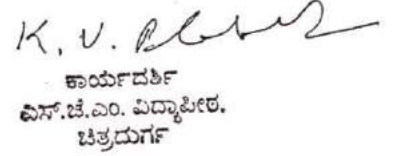 K. V.
ಕಾರ್ಯದರ್ಶಿ
ಎಸ್.ಜೆ.ಎಂ. ವಿದ್ಯಾಪೀಠ.
ಚಿತ್ರದುರ್ಗ